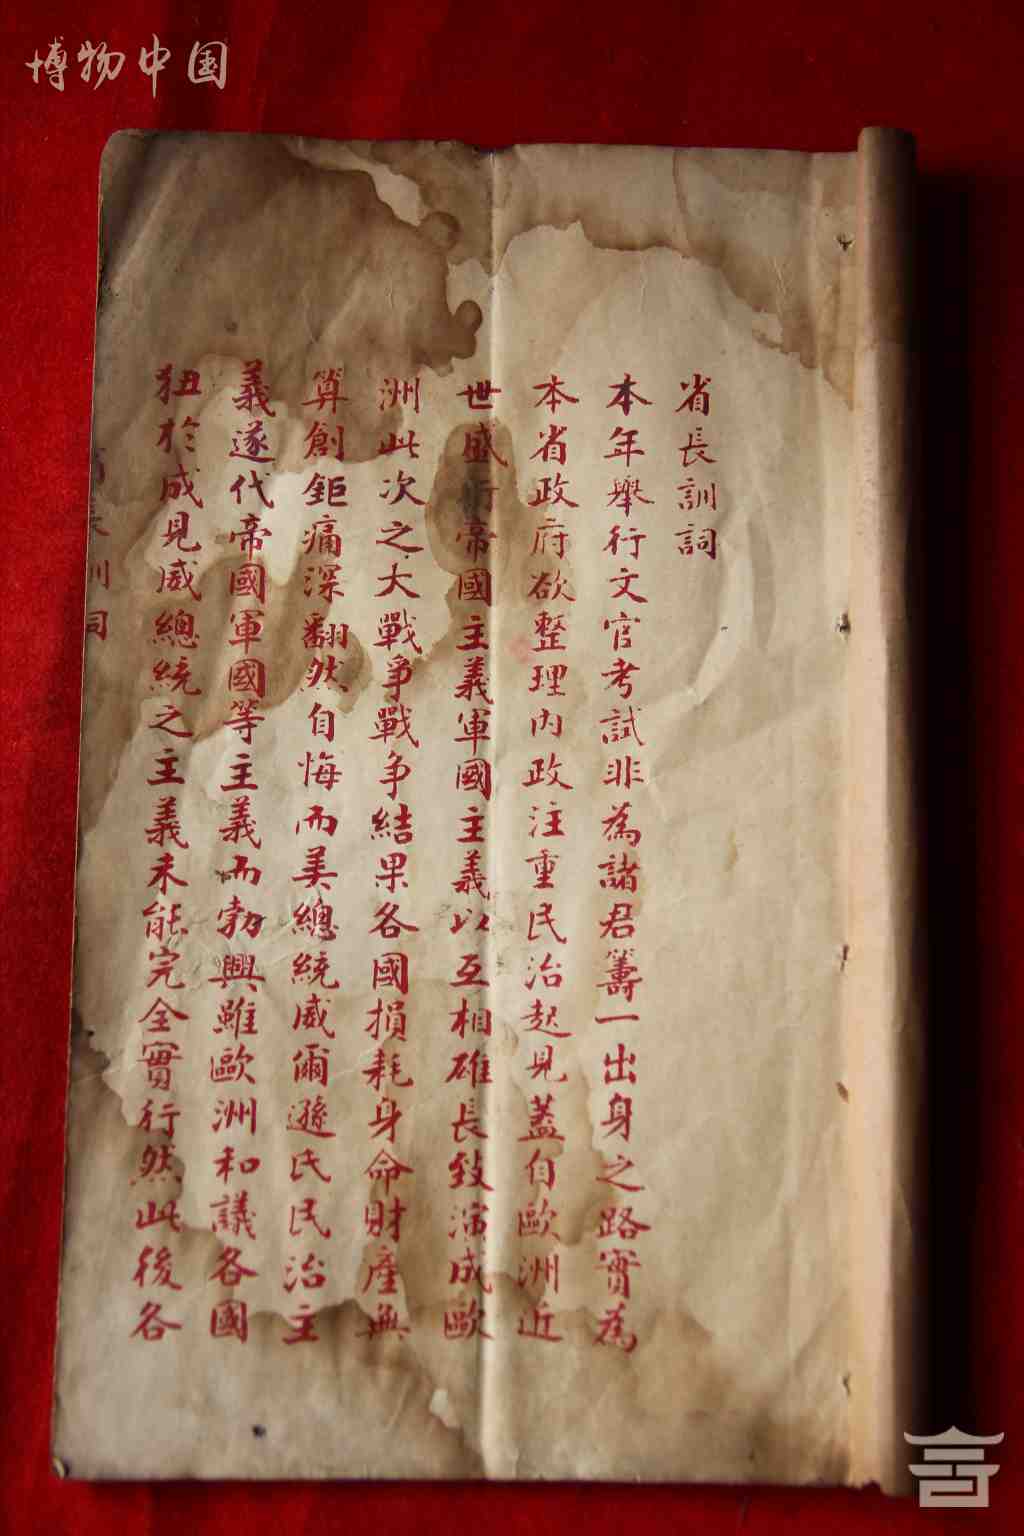 博物中国
省長訓詞
本年舉行文官考試非為諸君籌一出身之路實為
本省政府欲整理內政注重民治起見蓋自歐洲近
世盛行帝國主義軍國主義以互相雄長致演成歐
洲此次之大戰爭戰爭結果各國損耗身命財產無
算創鉅痛深翻然自悔而美總統威爾遜氏民治主
義遂代帝國軍國等主義而勃興雖歐洲和議各國
狃於成見威總統之主義未能完全實行然此後各